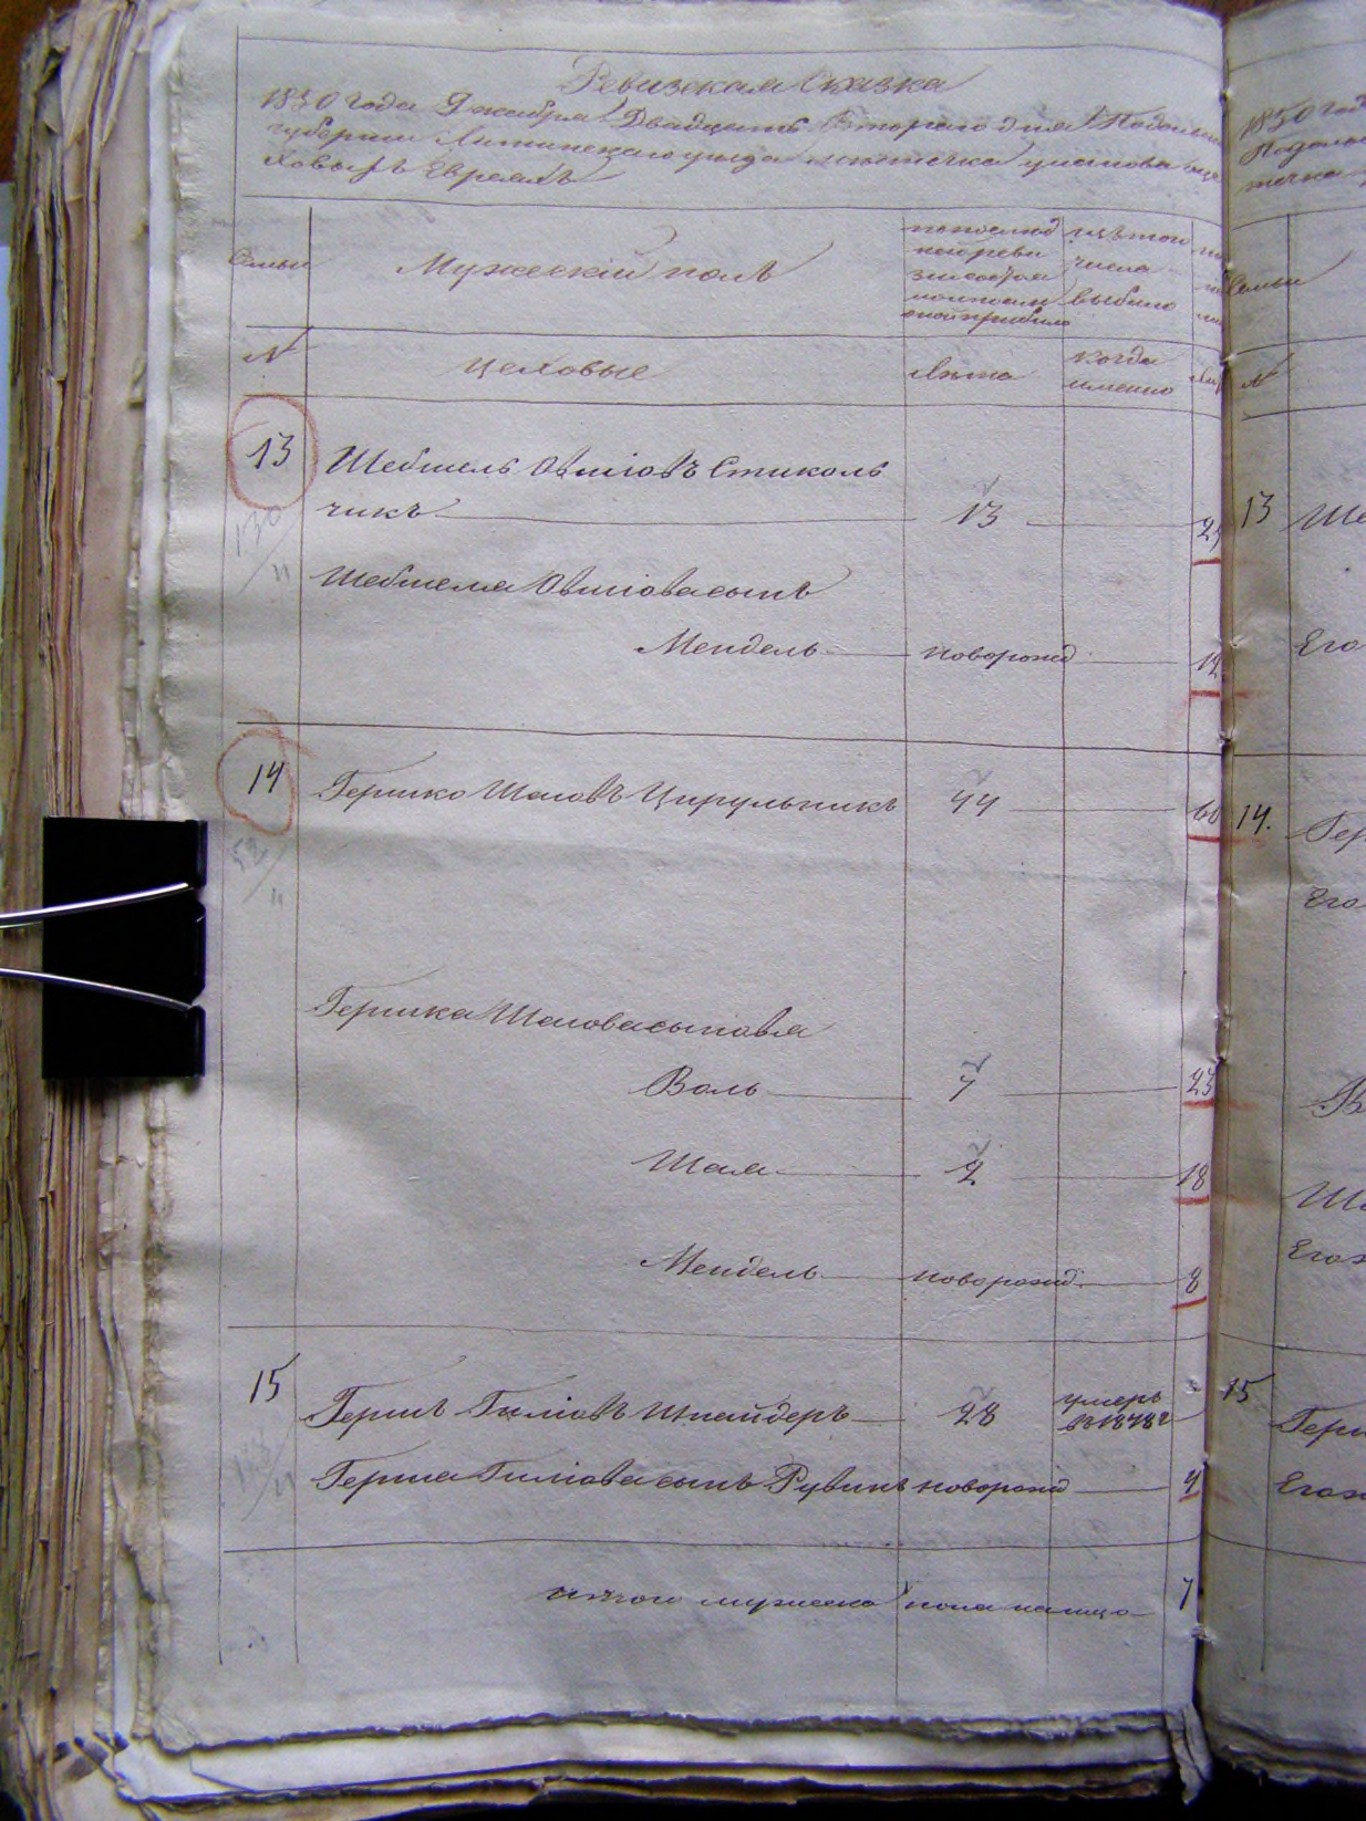 Ревизская Сказка
1850 года Декабря Двадцать Втораго дня Подольской
губернии Литинскаго уезда местечка Уланова о це
ховыхъ Евреяхъ
Семьи
Мужескій полъ
по послед
ней реви
зіи состоя
ло и после
оной прибыло
изъ того
числа
выбыло
№
Цеховые
Лета
когда
именно
13 Шевшель Овшіовъ Стиколь
чикъ 13
Шевшеля Овшіова сынъ
Мендель новорожд
14 Гершко Шаіовъ Цирульникъ 44 60
Гершка Шаіова сыновья
Воль 7 23
Шая 2 18
Мендель новорожд. 8
15 Гершъ Гиліовъ Шнейдеръ 28 умеръ
въ 1848 г
Герша Гиліова сынъ Рувинъ новорожд 4
итого мужеска пола налицо 7
1850 год
Подоль
течка
Семьи
№
13 Ше
Его
14. Гер
Его
В
Ша
Его
15
Герш
Его